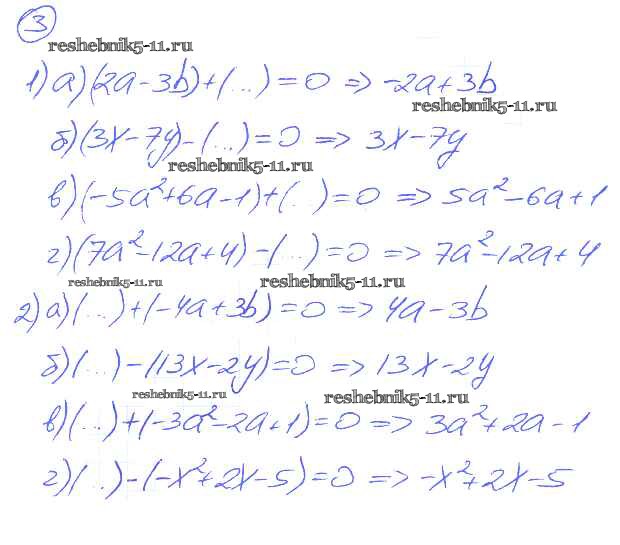 3
reshebnik5-11.ru
1) а) (2a - 3b) + (...) = 0 => -2a + 3b
reshebnik5-11.ru
б) (3x - 7y) - (...) = 0 => 3x - 7y
reshebnik5-11.ru
в) (-5a² + 6a - 1) + (...) = 0 => 5a² - 6a + 1
г) (7a² - 12a + 4) - (...) = 0 => 7a² - 12a + 4
reshebnik5-11.ru reshebnik5-11.ru
2) а) (...) + (-4a + 3b) = 0 => 4a - 3b
б) (...) - (13x - 2y) = 0 => 13x - 2y
reshebnik5-11.ru reshebnik5-11.ru
в) (...) + (-3a² - 2a + 1) = 0 => 3a² + 2a - 1
г) (...) - (-x² + 2x - 5) = 0 => -x² + 2x - 5